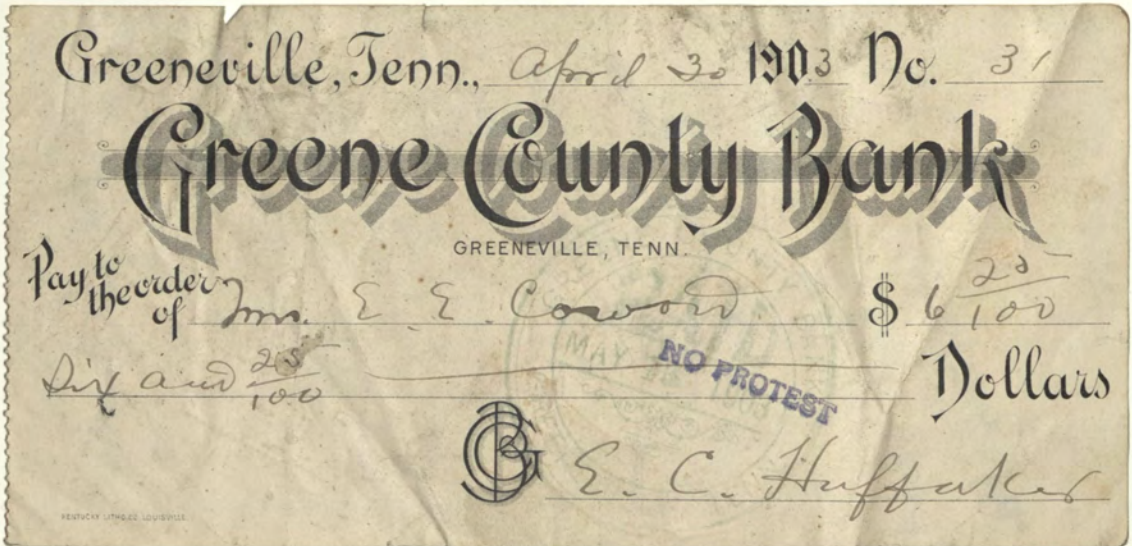 Greeneville, Tenn., April 30 1903 No. 31
Greene County Bank
GREENEVILLE, TENN.
Pay to the order of Mrs. E. E. Coword $ 6 25/100
Six and 25/100 Dollars
MAY
NO PROTEST
E. C. Huffaker
KENTUCKY LITHO. CO. LOUISVILLE.